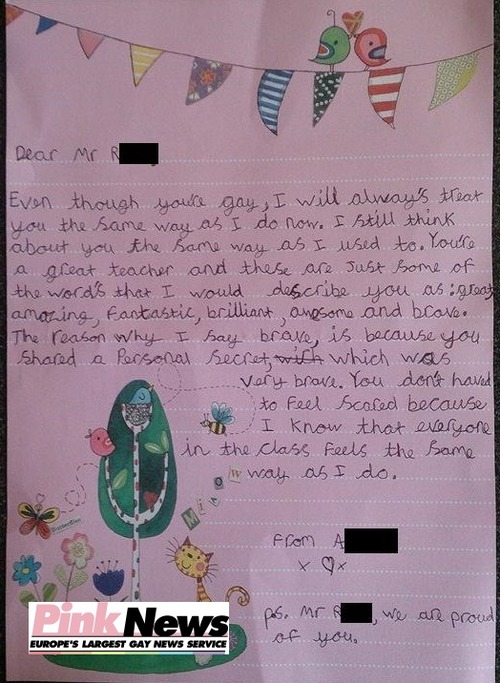 Dear Mr R
Even though you're gay, I will always's treat
you the same way as I do now. I still think
about you the same way as I used to. You're
a great teacher and these are just some of
the word's that I would describe you as: great
amazing, fantastic, brilliant, awesome and brave.
The reason why I say brave, is because you
shared a Personal secret, with which was
very brave. You don't haved
to feel scared because
I know that everyone
in the class feels the same
way as I do.
From A
x ♡ x
ps. Mr R, we are proud
of you.
PinkNews
EUROPE'S LARGEST GAY NEWS SERVICE